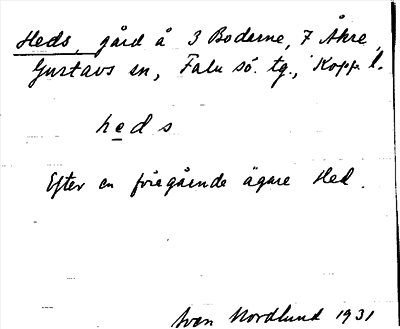 Heds, gård å 3 Bodarne, 7 Åkre,
Gustavs sn, Falu sö. tg., Kopp. l.
heds
Efter en föregående ägare Hed.
Sven Nordlund 1931